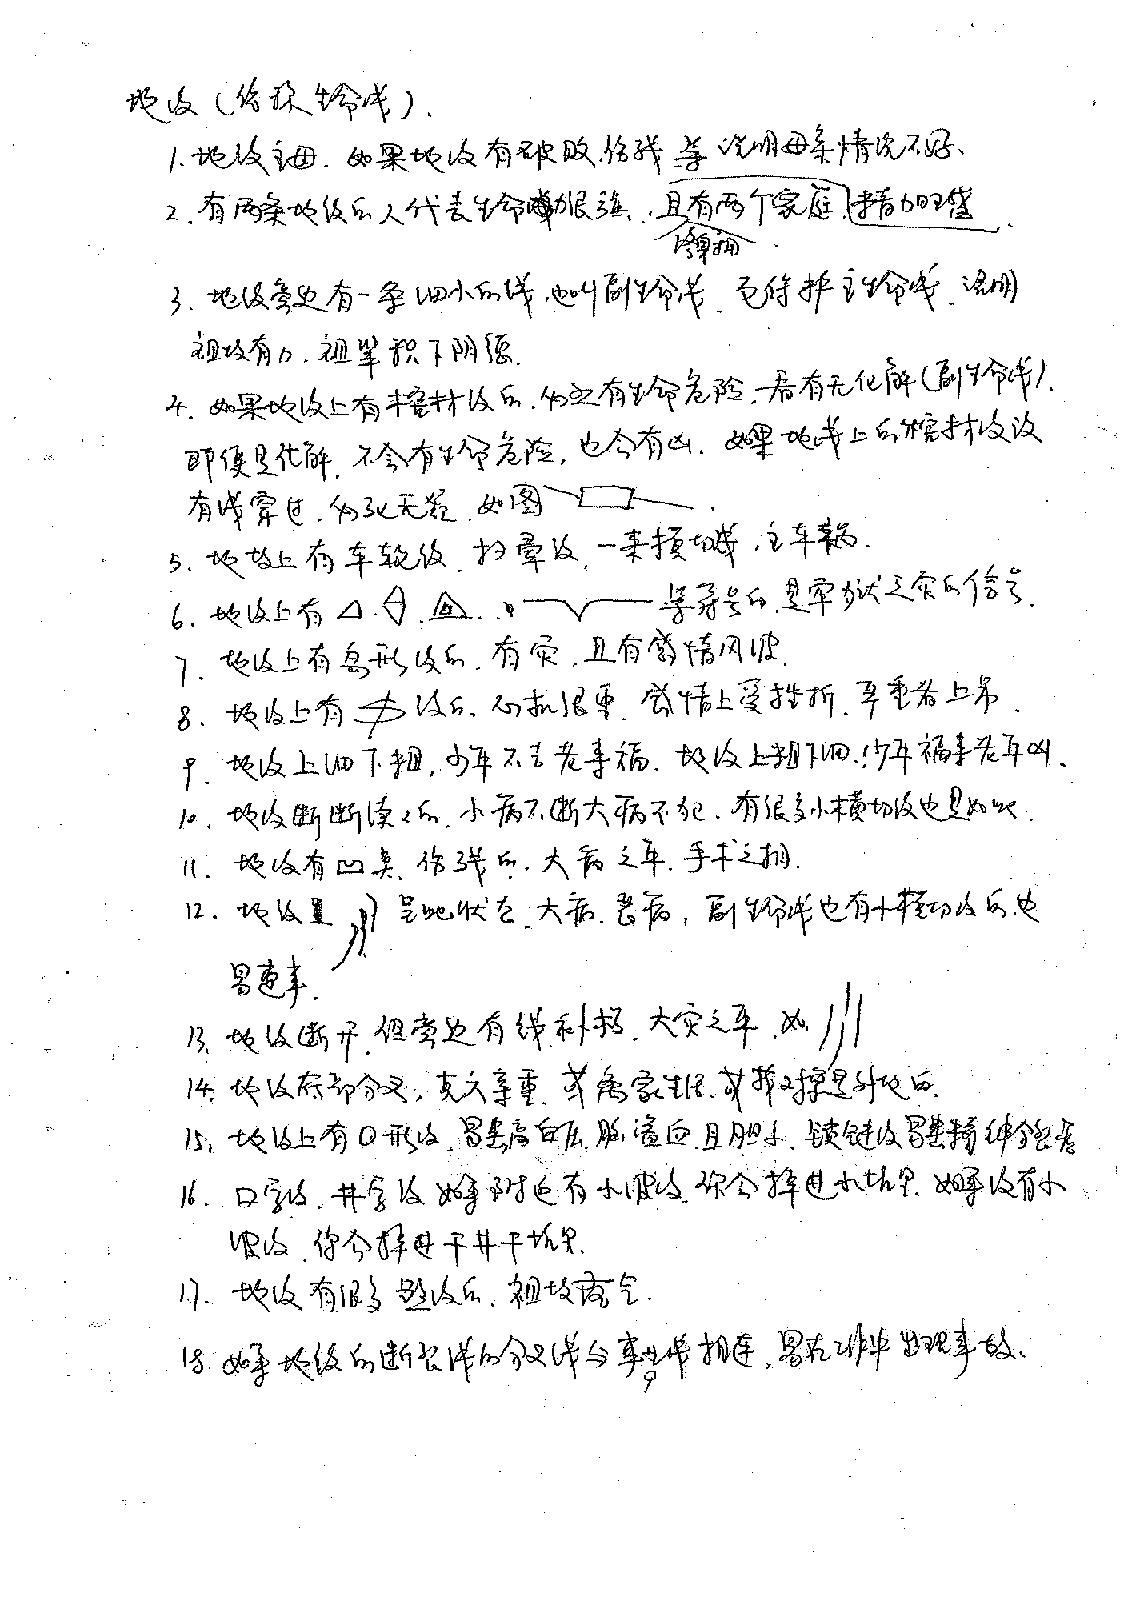 地纹（俗称生命线）.
1. 地纹主母. 如果地纹有破败.伤残等说明母亲情况不好、
2. 有两条地纹的人代表生命力很强. 且有两个家庭精力旺盛.
3. 地纹旁边有一条细小的线.也叫副生命线. 它保护主生命线. 说明
祖坟有力. 祖辈积下阴德.
4. 如果地纹上有棺材纹的.必定有生命危险.看有无化解（副生命线）.
即使是化解. 不会有生命危险. 也会有凶. 如果地线上的棺材纹没
有线穿过. 必死无疑. 如图 .
5. 地纹上有车轮纹. 一来横切线. 主车祸.
6. 地纹上有 等符号的. 是牢狱之灾的信号.
7. 地纹上有岛形纹的. 有灾. 且有感情风波.
8. 地纹上有 纹的. 心机很重. 感情上受挫折. 严重者上吊.
9. 地纹上细下粗. 少年不吉老来福. 地纹上粗下细. 少年福来老年凶.
10. 地纹断断续续的. 小病不断大病不犯. 有很多小横切纹也是如此.
11. 地纹有凹 伤残的. 大病之年. 手术之相.
12. 地纹呈 状态. 大病. 副生命线也有小横切纹的.也
易 事.
13. 地纹断开. 但旁边有线补 . 大灾之年. 如
14. 地纹底部分叉. 或离家生活. 或 对象是外地的.
15. 地纹上有口形纹. 易患高血压. 脑溢血.且胆小. 锁链纹易患精神分裂
16. 口字纹. 井字纹. 如果附近有水波纹. 你会掉进水坑里. 如果没有水
波纹. 你会掉进干井干坑里.
17. 地纹有很多 纹的. 祖坟
18. 如果地纹的断 线的分叉线与事业线相连. 易在工作中出现事故.